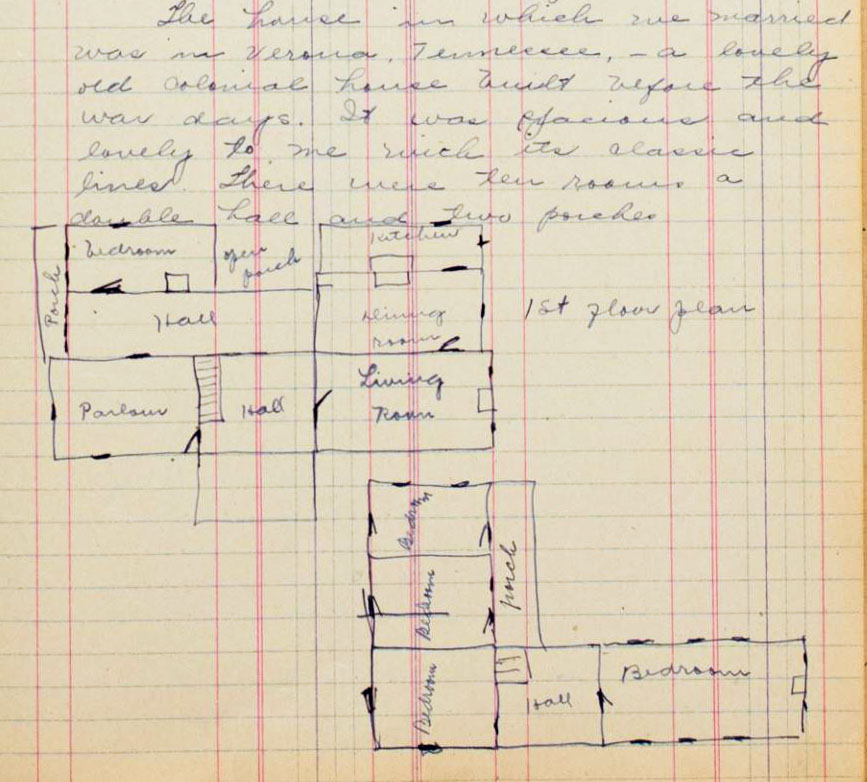 The house in which we married
was in Verona, Tennessee, - a lovely
old colonial house built before the
war days. It was spacious and
lovely to me with its classic
lines. There were ten rooms a
double hall and two porches
Kitchen
bedroom
open
porch
Porch
Hall
Dining
room
1st floor plan
Living
Room
Parlour
Hall
Bedroom
porch
Bedroom
Bedroom
Hall
Bedroom